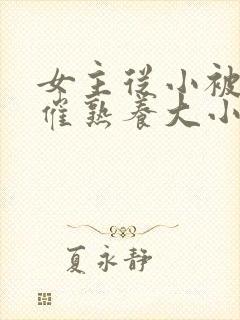 女主从小被
催熟养大小
夏永静